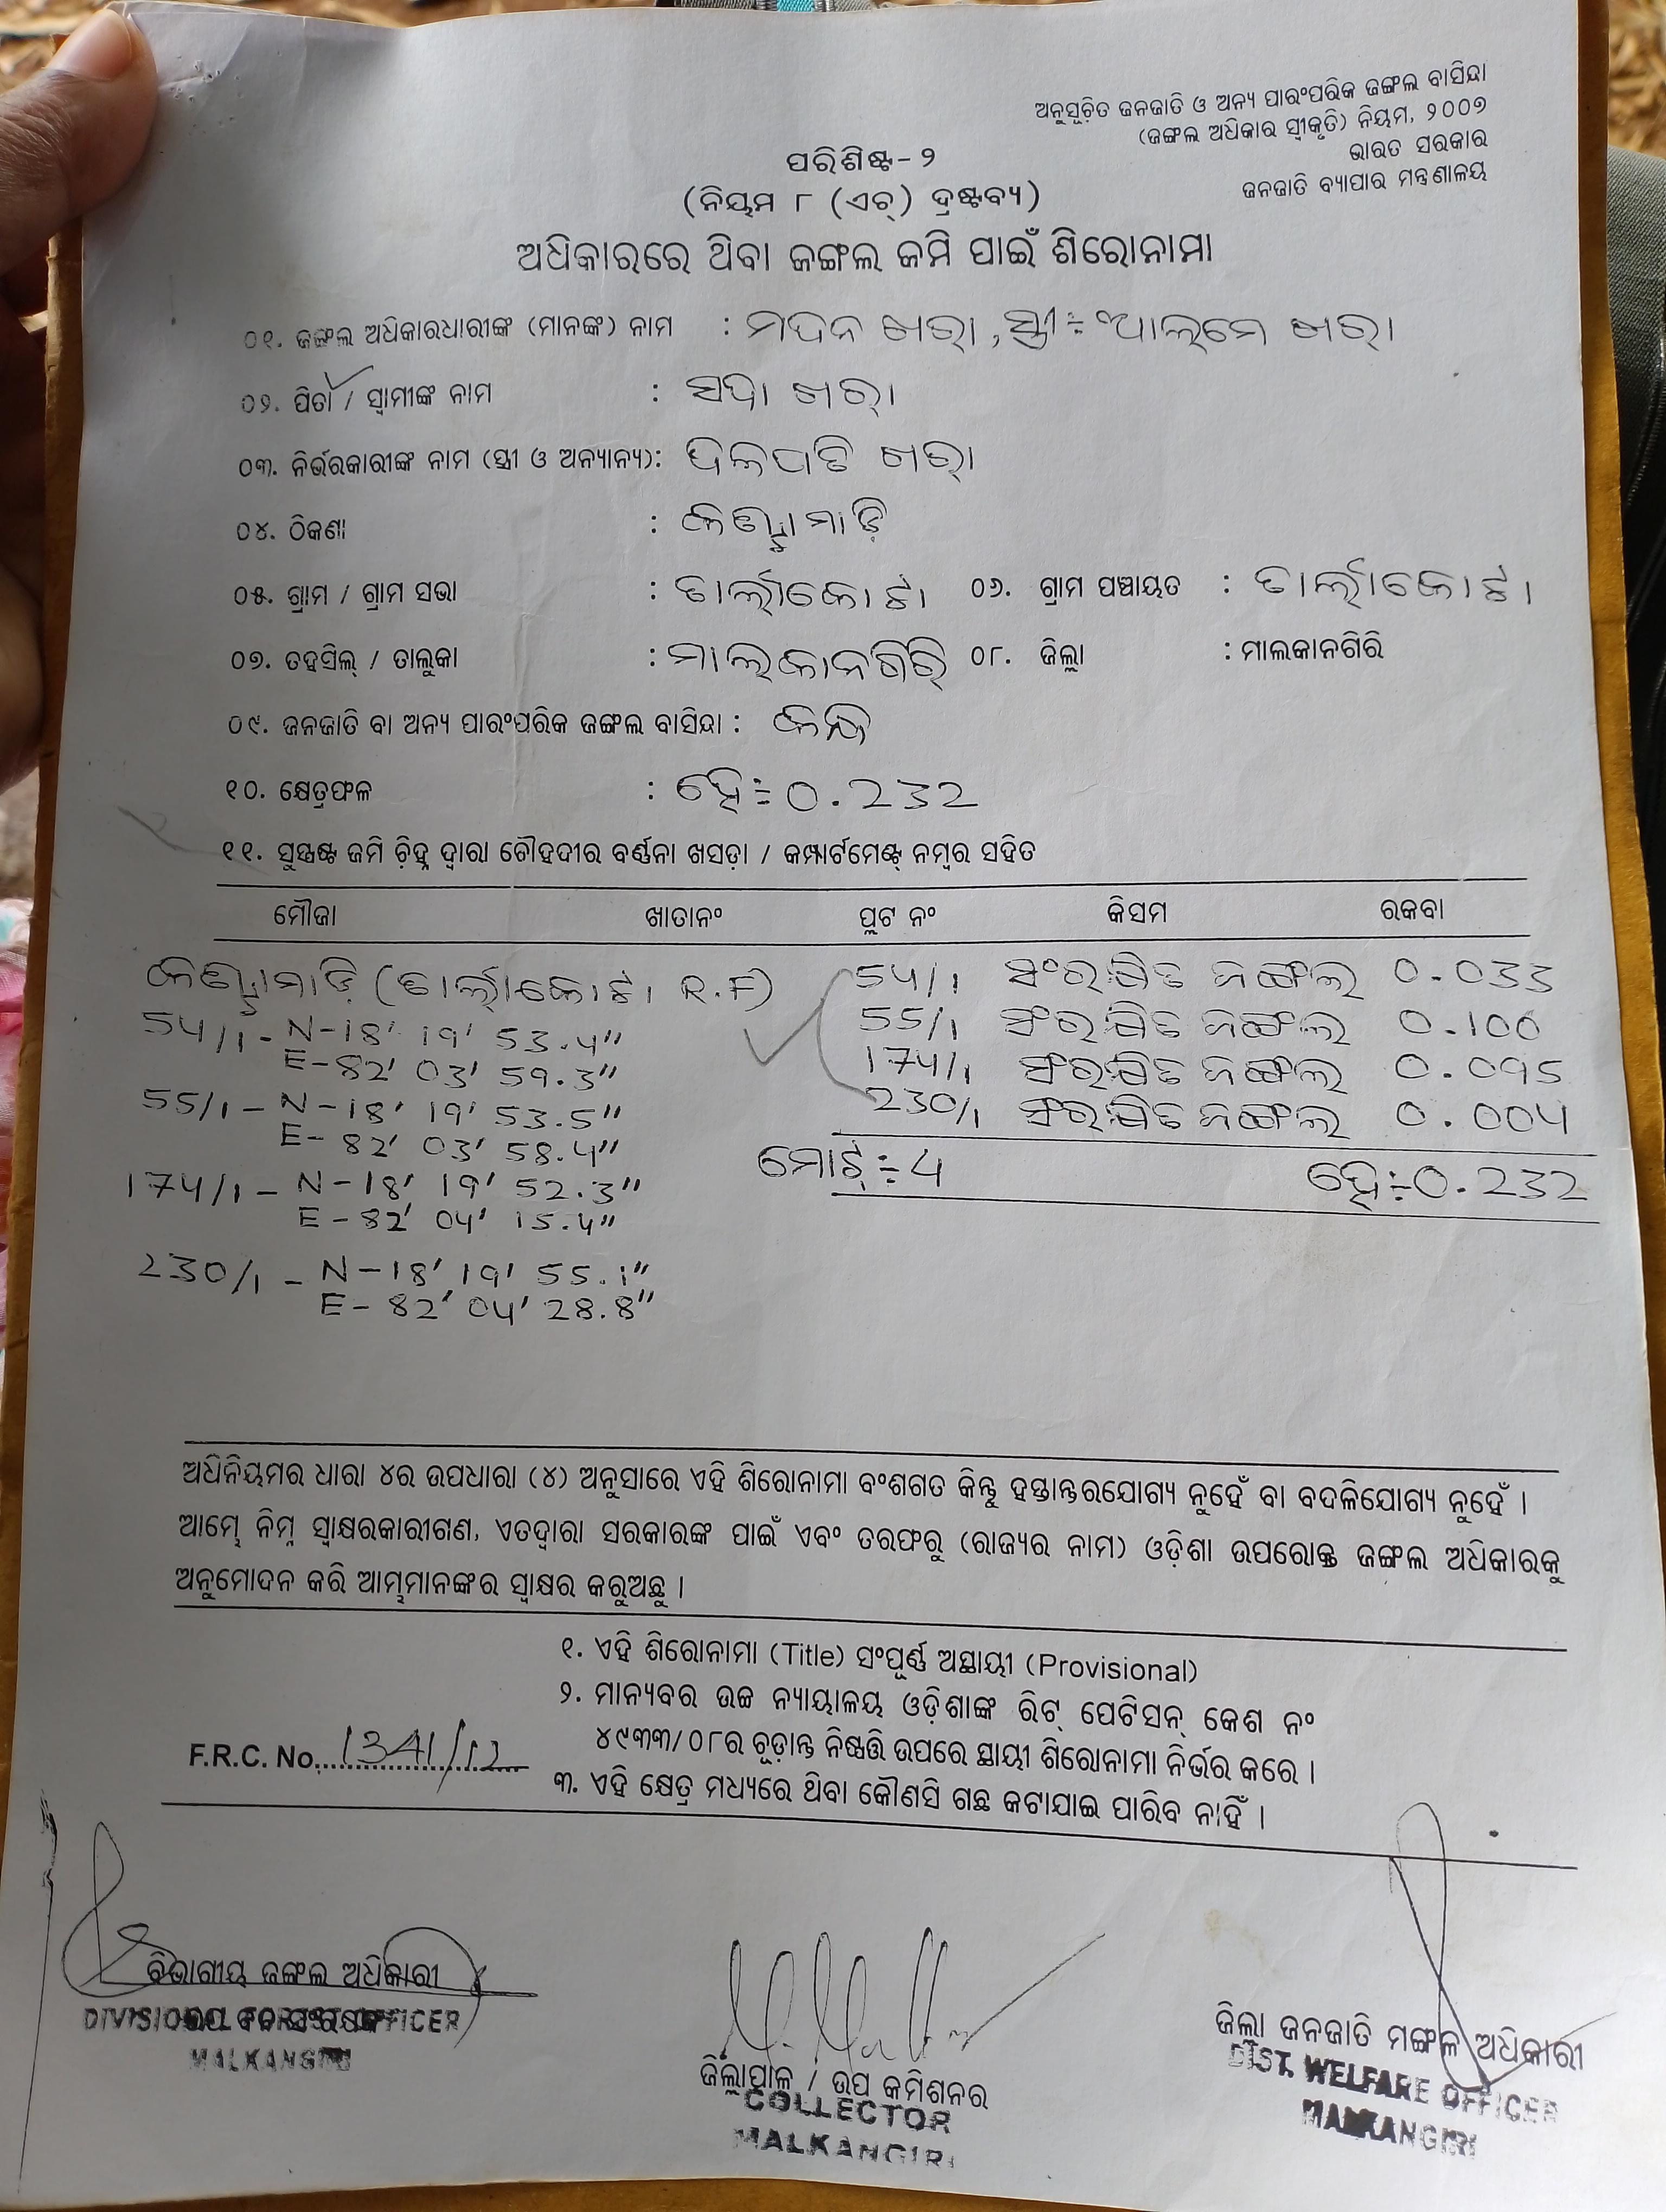 ଅନୁସୂଚିତ ଜନଜାତି ଓ ଅନ୍ୟ ପାରଂପରିକ ଜଙ୍ଗଲ ବାସିନ୍ଦା
(ଜଙ୍ଗଲ ଅଧିକାର ସ୍ୱୀକୃତି) ନିୟମ, ୨୦୦୭
ଭାରତ ସରକାର
ଜନଜାତି ବ୍ୟାପାର ମନ୍ତ୍ରଣାଳୟ
ପରିଶିଷ୍ଟ-୨
(ନିୟମ ୮ (ଏଚ୍) ଦ୍ରଷ୍ଟବ୍ୟ)
ଅଧିକାରରେ ଥିବା ଜଙ୍ଗଲ ଜମି ପାଇଁ ଶିରୋନାମା
୦୧. ଜଙ୍ଗଲ ଅଧିକାରଧାରୀଙ୍କ (ମାନଙ୍କ) ନାମ : ମଦନ ଖରା, ସ୍ତ୍ରୀ÷ ଆଲମେ ଖରା
୦୨. ପିତା / ସ୍ୱାମୀଙ୍କ ନାମ : ସଦା ଖରା
୦୩. ନିର୍ଭରକାରୀଙ୍କ ନାମ (ସ୍ତ୍ରୀ ଓ ଅନ୍ୟାନ୍ୟ): ଦଳପତି ଖରା
୦୪. ଠିକଣା :
୦୫. ଗ୍ରାମ / ଗ୍ରାମ ସଭା : ତାର୍ଲାକୋଟା ୦୬. ଗ୍ରାମ ପଞ୍ଚାୟତ : ତାର୍ଲାକୋଟା
୦୭. ତହସିଲ୍ / ତାଲୁକା : ମାଲକାନଗିରି ୦୮. ଜିଲ୍ଲା : ମାଲକାନଗିରି
୦୯. ଜନଜାତି ବା ଅନ୍ୟ ପାରଂପରିକ ଜଙ୍ଗଲ ବାସିନ୍ଦା : କନ୍ଧ
୧୦. କ୍ଷେତ୍ରଫଳ : ହେ÷ 0.232
୧୧. ସୁସ୍ପଷ୍ଟ ଜମି ଚିହ୍ନ ଦ୍ୱାରା ଚୌହଦୀର ବର୍ଣ୍ଣନା ଖସଡ଼ା / କମ୍ପାର୍ଟମେଣ୍ଟ ନମ୍ବର ସହିତ
ମୌଜା ଖାତାନଂ ପ୍ଲଟ ନଂ କିସମ ରକବା
(ତାର୍ଲାକୋଟା R.F) 54/1 ସଂରକ୍ଷିତ ଜଙ୍ଗଲ 0.033
54/1 - N-18' 19' 53.4" 55/1 ସଂରକ୍ଷିତ ଜଙ୍ଗଲ 0.100
E-82' 03' 59.3" 174/1 ସଂରକ୍ଷିତ ଜଙ୍ଗଲ 0.095
55/1 - N-18' 19' 53.5" 230/1 ସଂରକ୍ଷିତ ଜଙ୍ଗଲ 0.004
E- 82' 03' 58.4"
ମୋଟ୍÷ 4 ହେ÷0.232
174/1 - N-18' 19' 52.3"
E-82' 04' 15.4"
230/1 - N-18' 19' 55.1"
E- 82' 04' 28.8"
ଅଧିନିୟମର ଧାରା ୪ର ଉପଧାରା (୪) ଅନୁସାରେ ଏହି ଶିରୋନାମା ବଂଶଗତ କିନ୍ତୁ ହସ୍ତାନ୍ତରଯୋଗ୍ୟ ନୁହେଁ ବା ବଦଳିଯୋଗ୍ୟ ନୁହେଁ ।
ଆମ୍ଭେ ନିମ୍ନ ସ୍ୱାକ୍ଷରକାରୀଗଣ, ଏତଦ୍ୱାରା ସରକାରଙ୍କ ପାଇଁ ଏବଂ ତରଫରୁ (ରାଜ୍ୟର ନାମ) ଓଡ଼ିଶା ଉପରୋକ୍ତ ଜଙ୍ଗଲ ଅଧିକାରକୁ
ଅନୁମୋଦନ କରି ଆମ୍ଭମାନଙ୍କର ସ୍ୱାକ୍ଷର କରୁଅଛୁ ।
୧. ଏହି ଶିରୋନାମା (Title) ସଂପୂର୍ଣ୍ଣ ଅସ୍ଥାୟୀ (Provisional)
୨. ମାନ୍ୟବର ଉଚ୍ଚ ନ୍ୟାୟାଳୟ ଓଡ଼ିଶାଙ୍କ ରିଟ୍ ପେଟିସନ୍ କେଶ ନଂ
୪୯୩୩/୦୮ର ଚୂଡ଼ାନ୍ତ ନିଷ୍ପତ୍ତି ଉପରେ ସ୍ଥାୟୀ ଶିରୋନାମା ନିର୍ଭର କରେ ।
F.R.C. No. 1341/12
୩. ଏହି କ୍ଷେତ୍ର ମଧ୍ୟରେ ଥିବା କୌଣସି ଗଛ କଟାଯାଇ ପାରିବ ନାହିଁ ।
ବିଭାଗୀୟ ଜଙ୍ଗଲ ଅଧିକାରୀ
ଉପ ବନ ସଂରକ୍ଷକ
DIVISIONAL FOREST OFFICER
MALKANGIRI
ଜିଲ୍ଲାପାଳ / ଉପ କମିଶନର
COLLECTOR
MALKANGIRI
ଜିଲ୍ଲା ଜନଜାତି ମଙ୍ଗଳ ଅଧିକାରୀ
DIST. WELFARE OFFICER
MALKANGIRI